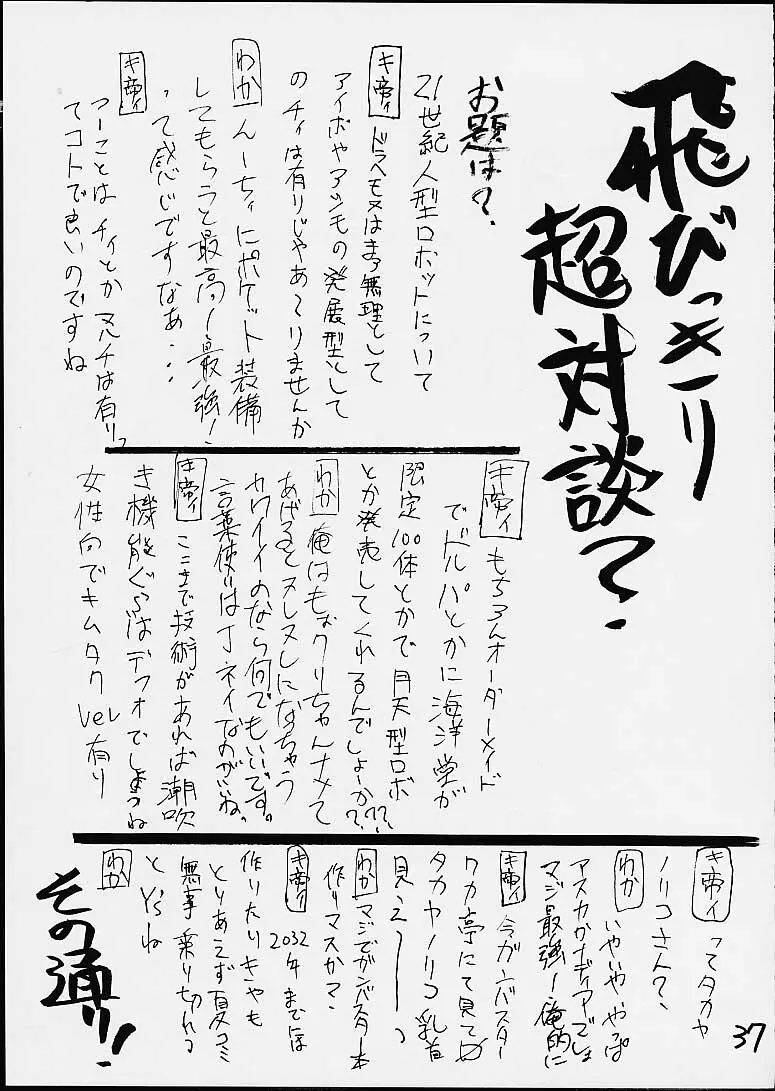 飛びっきり
超対談?
お題は?
21世紀人型ロボットについて
キ帝ィ ドラへモヌはまづ無理として
アイボやアシモの発展型として
のチィは有りじゃあーりませんか
わか んーちぃにポケット装備
してもらうと最高ー!最強!
って感じですなぁ・・・
キ帝ィ
つーことはチィとかマルチは有りっ
てコトで良いのですね
キ帝ィ もちろんオーダーメイド
でドルパとかに海洋堂が
限定100体とかで月天型ロボ
とか発売してくれるんでしょーか??
わか 俺はもぉクリちゃんナメて
あげるとヌレヌレになっちゃう
カワイイのなら何でもいいです。
言葉使いはテイネイなのがいいね。
キ帝ィ ここまで技術があれば潮吹
き機能ぐらいはデフォでしょうね
女性向でキムタクver有り
キ帝ィ ってタカヤ
ノリコさん?、
わか いやいややっぱ
アスカかナディアでしょ
マジ最強!俺的に
キ帝ィ 今ガンバスター
ワカ亭にて見てめ
タカヤノリコ乳首
見えーーっ
わか マジでガンバスター本
作りマスか?
キ帝ィ 2032年までには
作りたりきやも
とりあえず夏コミ
無事乗り切れる
とY'sね
わか
その通り!
37